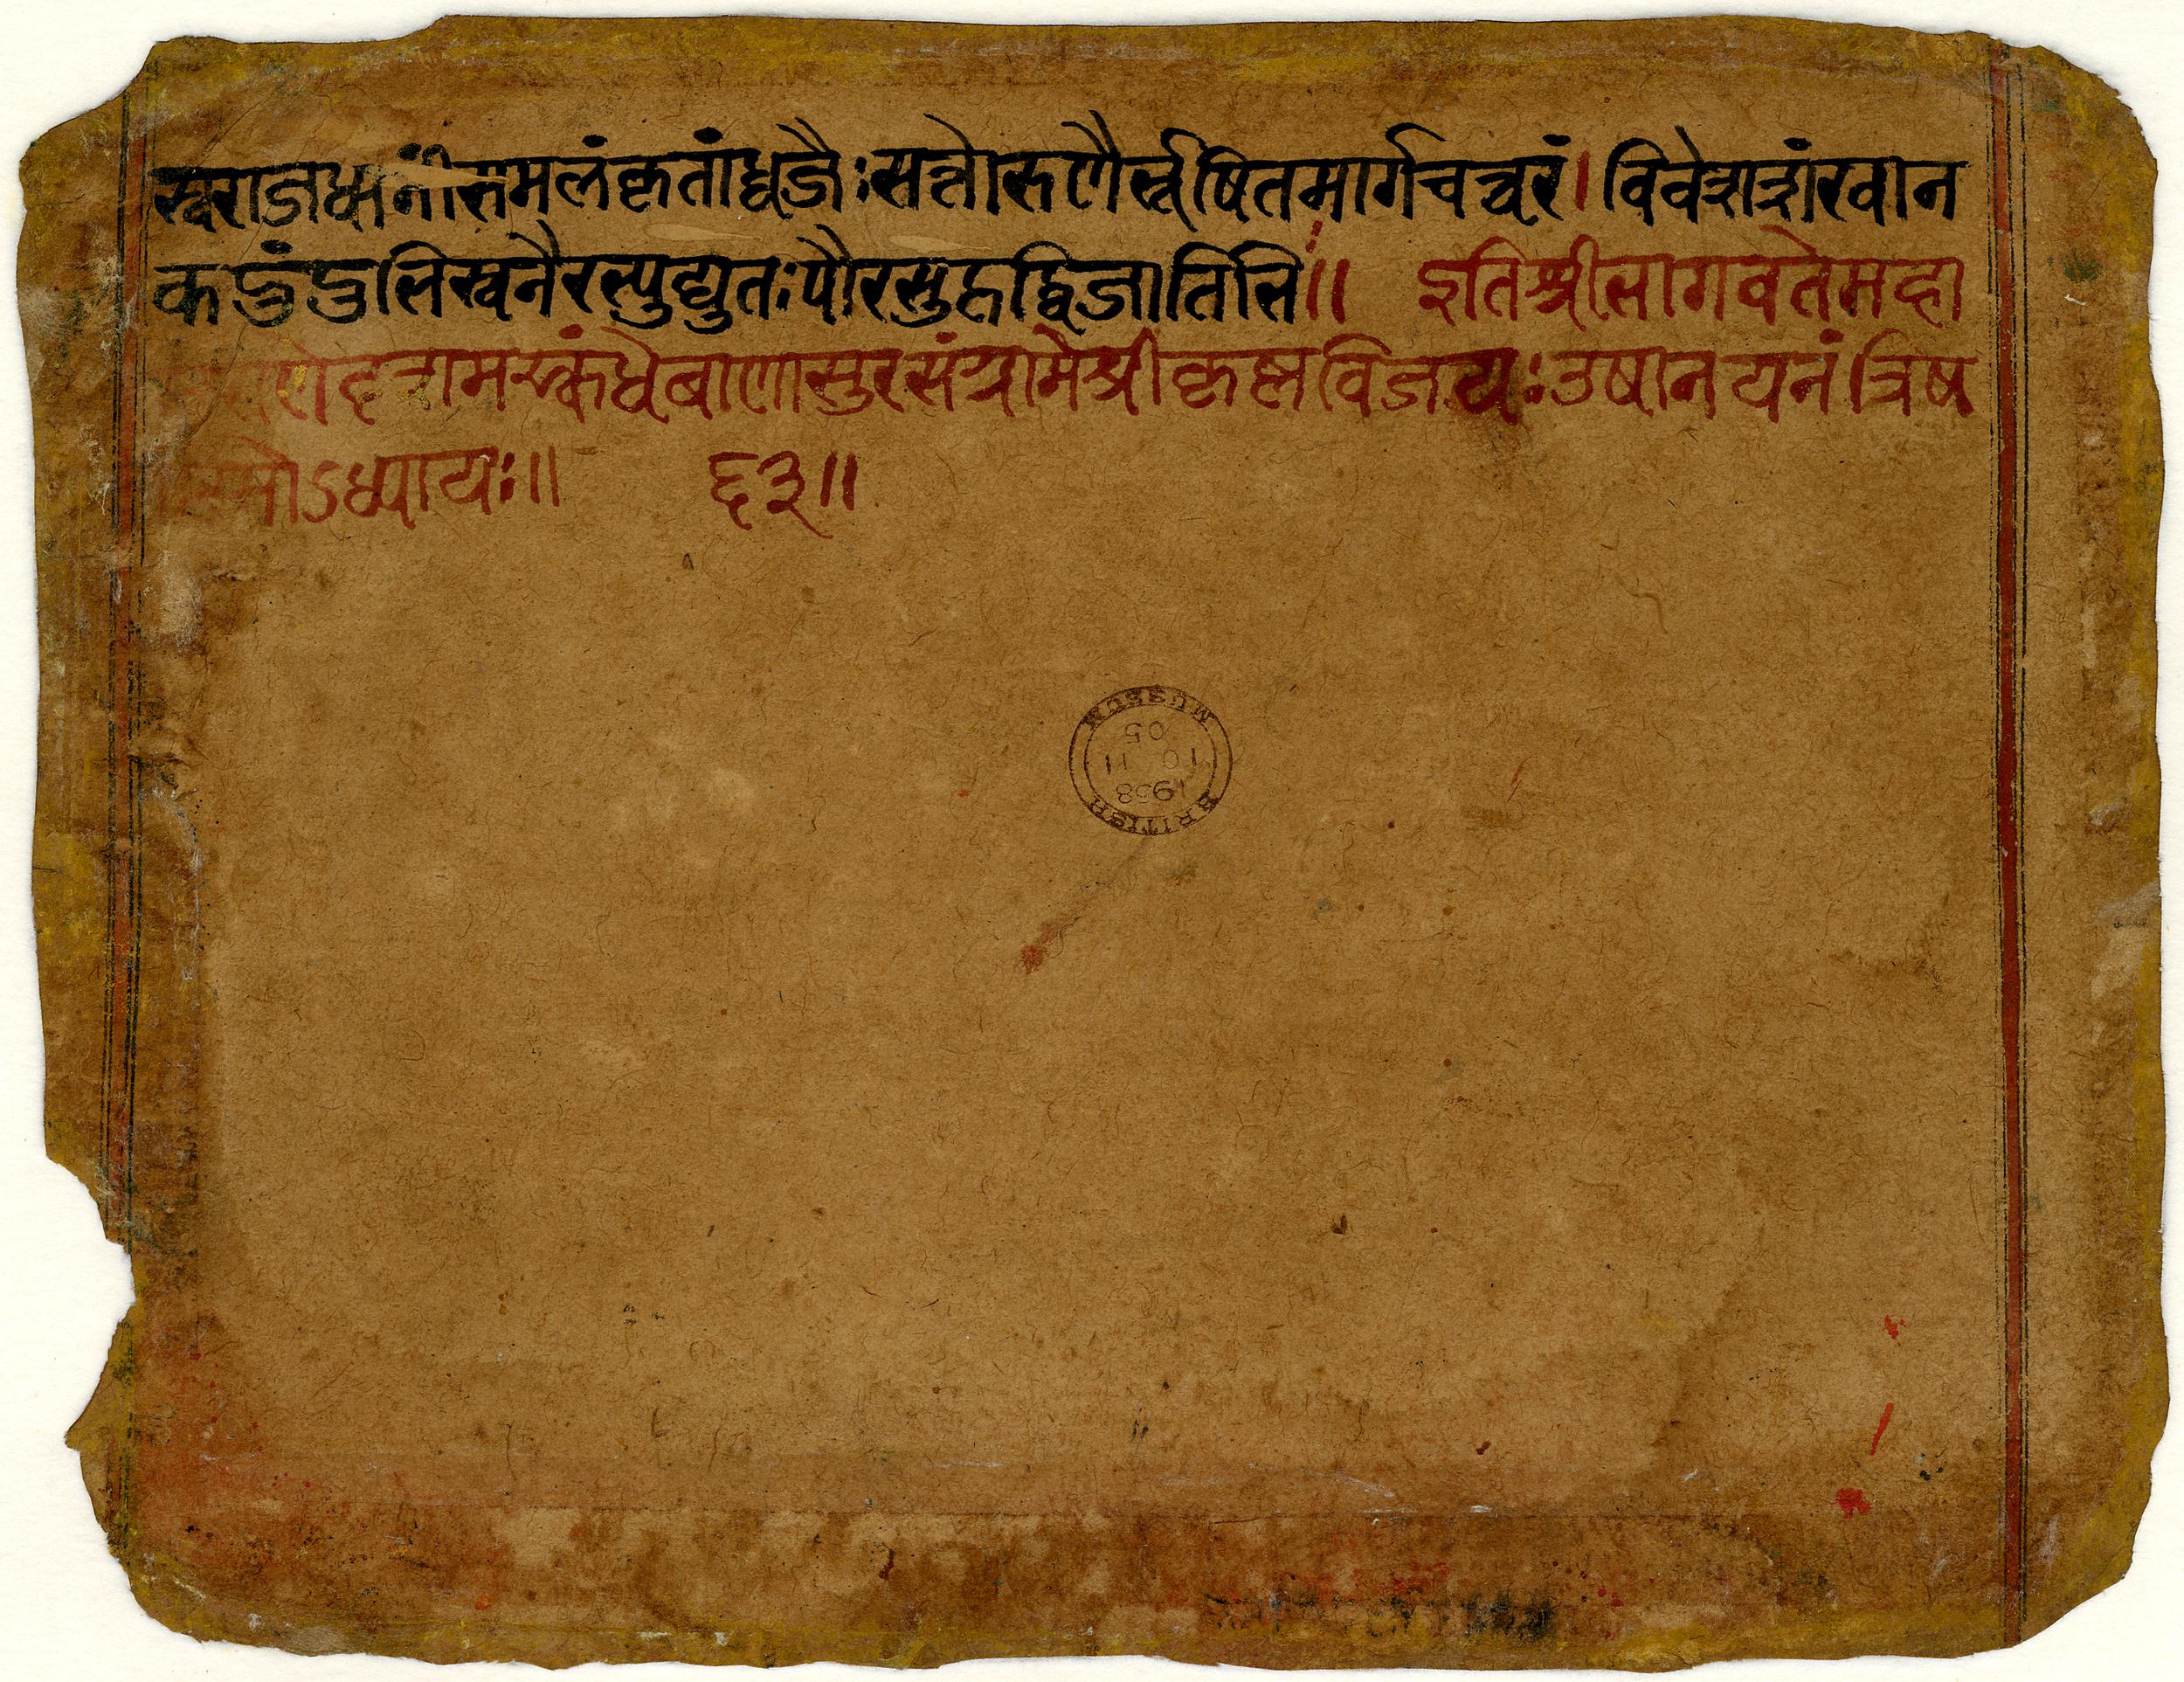 स्वराजधानीं समलंकृतां ध्वजैः सतोरुणैर्भूषितमार्गचत्वरं । विवेश शंखान
कदुंदुभिस्वनैरभ्युद्युतः पौरसुहृद्द्विजातिभि ॥ इति श्रीभागवते महा
णे दशमस्कंधे बाणासुरसंग्रामे श्रीकृष्णविजयः उषानयनं त्रिष
मोऽध्यायः ॥ ६३ ॥
BRITISH MUSEUM
1958
10 11
05